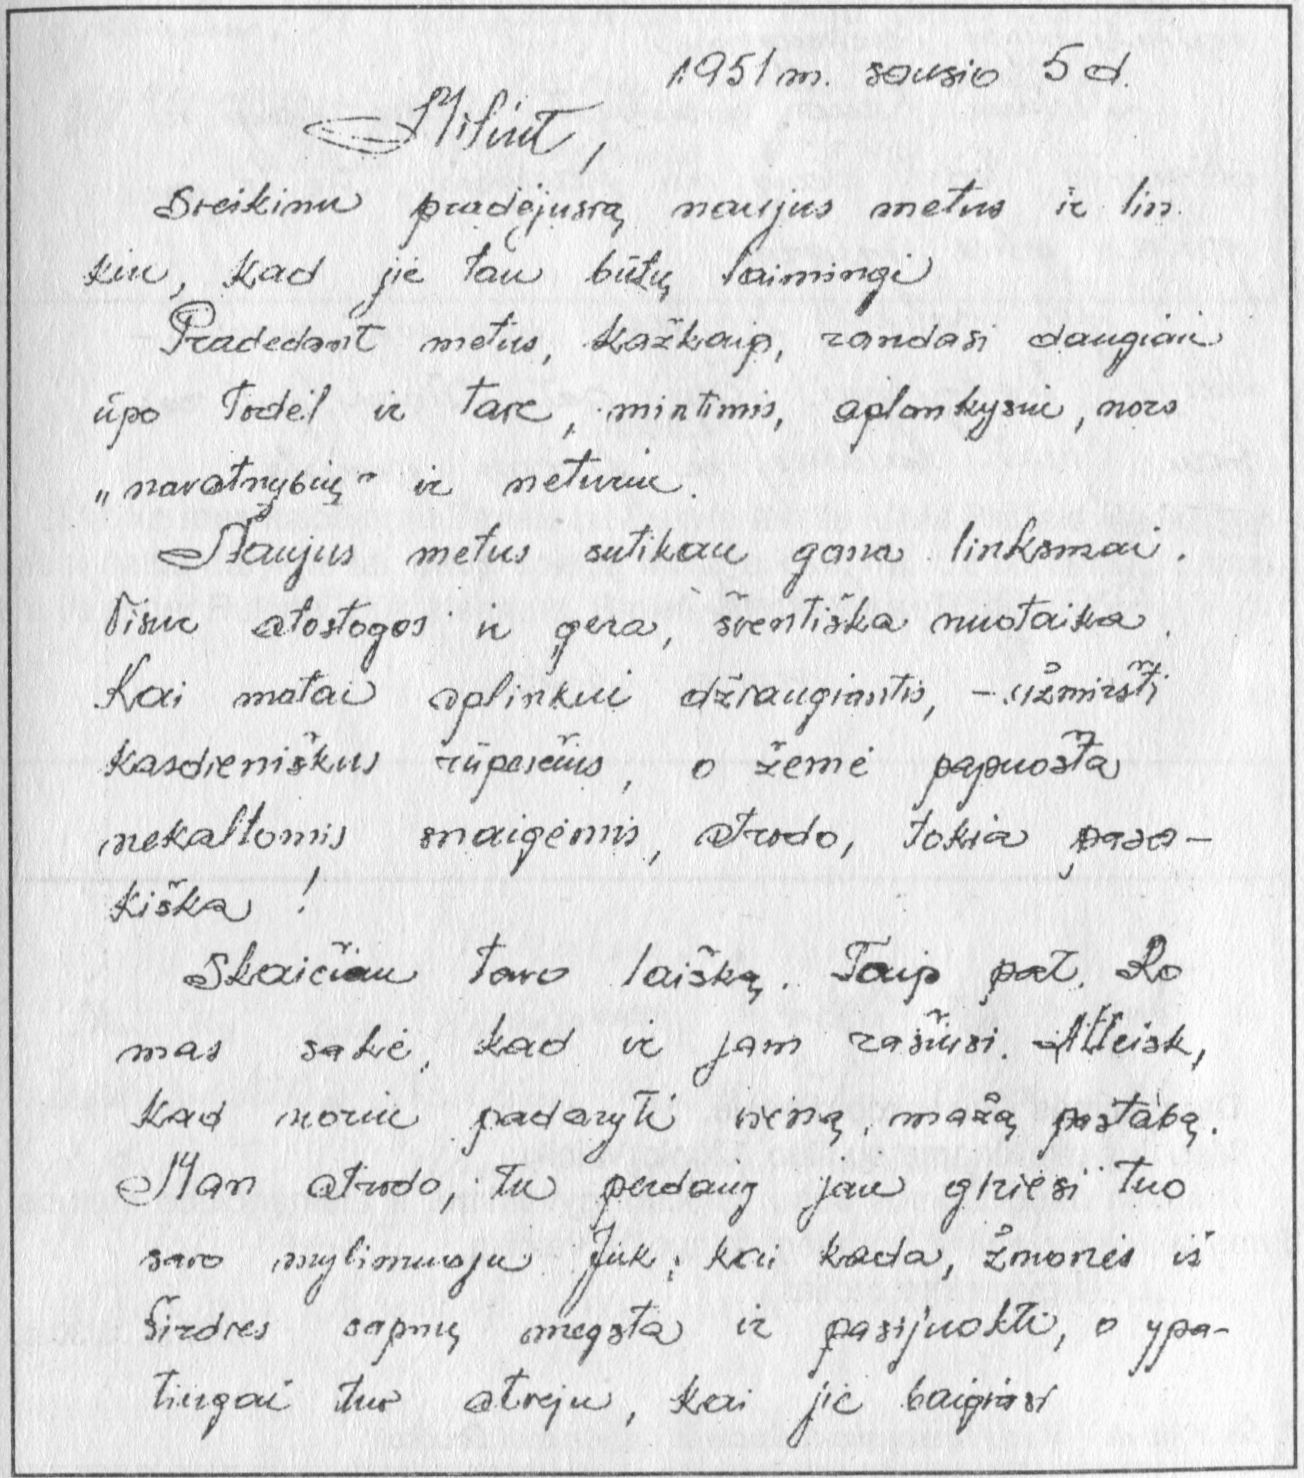 1951 m. sausio 5 d.
Milut,
Sveikinu pradėjusią naujus metus ir lin
kiu, kad jie tau būtų laimingi
Pradedant metus, kažkaip, randasi daugiau
ūpo Todėl ir tave, mintimis, aplankysiu, nors
„navatnybių" ir neturiu.
Naujus metus sutikau gana linksmai.
Visur atostogos ir gera, šventiška nuotaika.
Kai matai aplinkui džiaugiantis, – užmiršti
kasdieniškus rūpesčius, o žemė papuošta
nekaltomis snaigėmis, atrodo, tokia pasa-
kiška!
Skaičiau tavo laišką. Taip pat. Ro
mas sakė, kad ir jam rašiusi. Atleisk,
kad noriu padaryti vieną, mažą pastabą.
Man atrodo, tu perdaug jau griesi tuo
savo mylimuoju Juk, kai kada, žmonės iš
širdies sapnų mėgsta ir pasijuokti, o ypa-
tingai tuo atveju, kai jie baigiasi